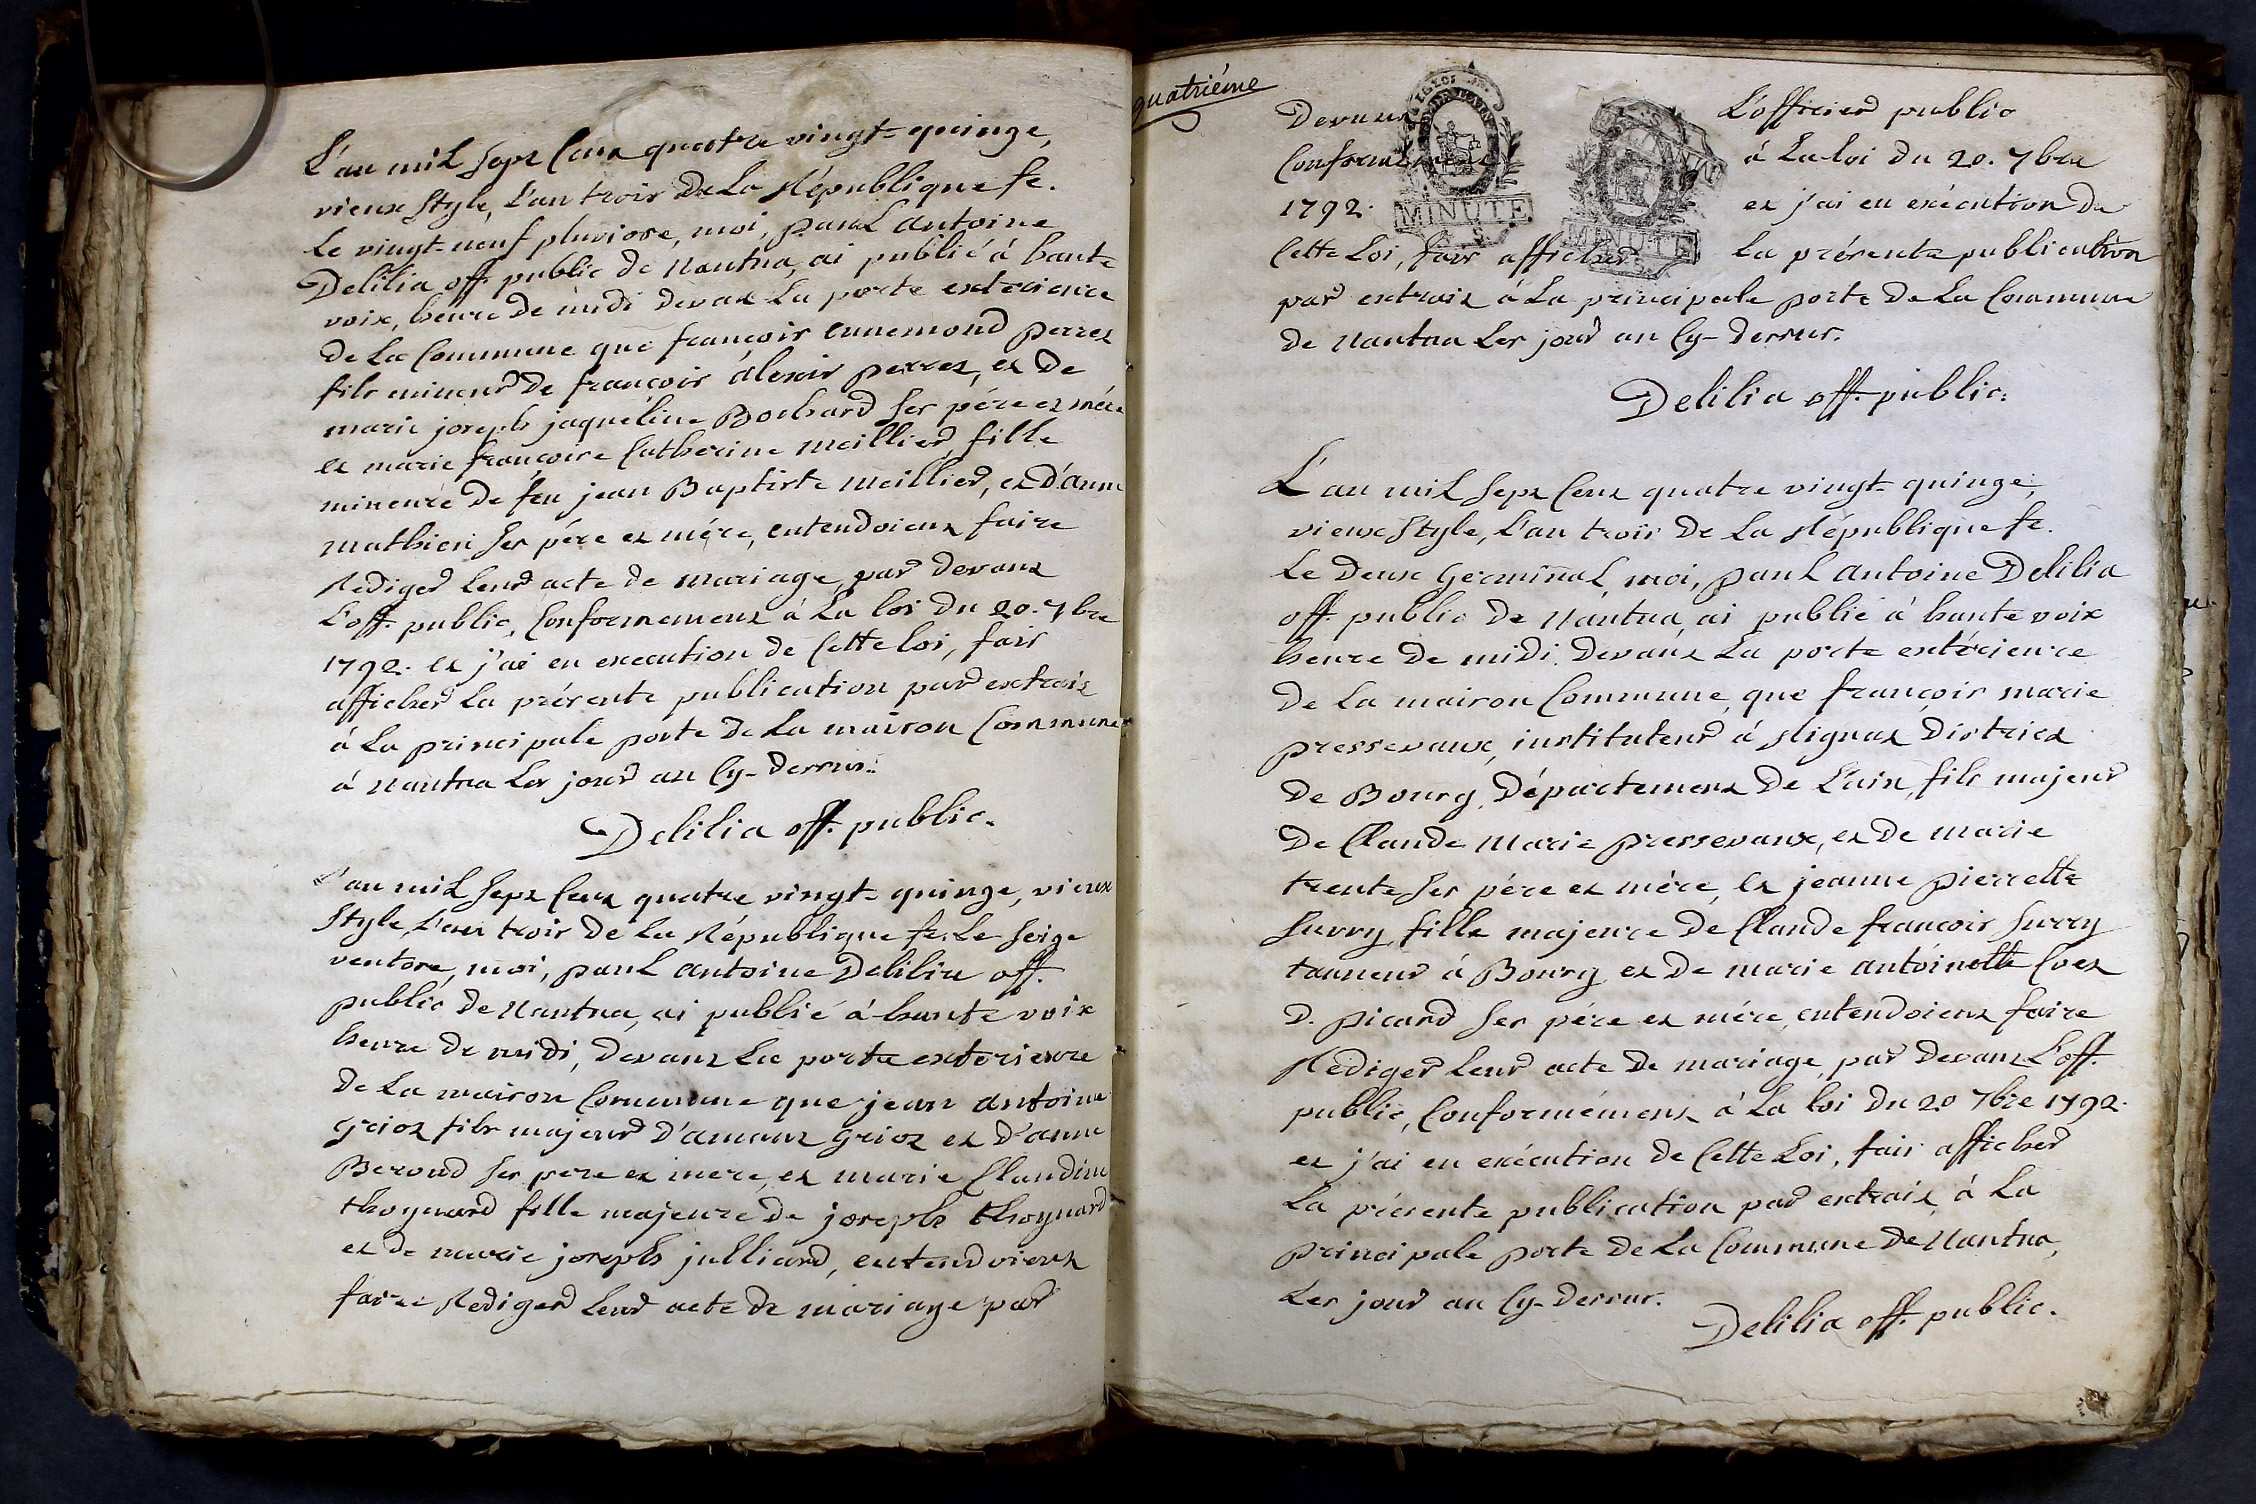 L'an mil sept Cent quatre vingt-quinze,
vieux style, L'an trois De La République fe.
Le vingt-neuf pluviose, moi, paul antoine
Delilia off. public de Nantua, ai publié à haute
voix, heure De midi devant La porte exterieure
de La Commune que françois ennemond perret
fils mineur De françois alexis perret, et De
marie joseph jaqueline Bochard ses pére et mére
et marie françoise Catherine meillier, fille
mineure De feu jean Baptiste meillier, et d'anne
mathieu ses pére et mére, entendoient faire
Rediger leur acte de mariage par devant
L'off. public, Conformement à La loi Du 20. 7bre
1792. et j'ai en execution de Cette loi, fait
afficher La présente publication par extrait
à La principale porte De La maison Commune
à Nantua Les jour an Cy-dessus.
Delilia off. public.
L'an mil sept Cent quatre vingt-quinze, vieux
Style, L'an trois De La République fe. Le seize
ventose, moi, paul antoine Delilia off.
public De Nantua, ai publié à haute voix
heure De midi, Devant La porte exterieure
De La maison Commune que jean antoine
griot fils majeur D'amant griot et D'anne
Beroud ses pere et mere, et marie Claudine
thoynard fille majeure De joseph thoynard
et De marie joseph julliard, entendoient
faire Rediger leur acte De mariage par
quatriéme
Devant L'officier public
Conformement à La loi Du 20. 7bre
1792. et j'ai en exécution De
Cette Loi, fait afficher La présente publication
par extrait à La principale porte De La Commune
de Nantua Les jour an Cy-Dessus.
MINUTE
MINUTE
Delilia off. public.
L'an mil sept Cent quatre vingt-quinze,
vieux Style, L'an trois De La République fe.
Le Deux Germinal, moi, paul antoine Delilia
off. public De Nantua, ai publié à haute voix
heure De midi Devant La porte extérieure
De La maison Commune, que françois marie
pressevaux, instituteur à Rignat, District
De Bourg, Département De L'ain, fils majeur
De Claude Marie pressevaux, et De marie
trente ses pére et mére, et jeanne pierrette
Survy, fille majeure De Claude françois Survy
tanneur à Bourg et De marie antoinette Cuet
D. picard ses pére et mére, entendoient faire
Rédiger leur acte De mariage, par Devant L'off.
public, Conformément à La loi Du 20 7bre 1792.
et j'ai en exécution de Cette Loi, fait afficher
La présente publication par extrait à La
principale porte De La Commune De Nantua,
Les jour an Cy-Dessus.
Delilia off. public.